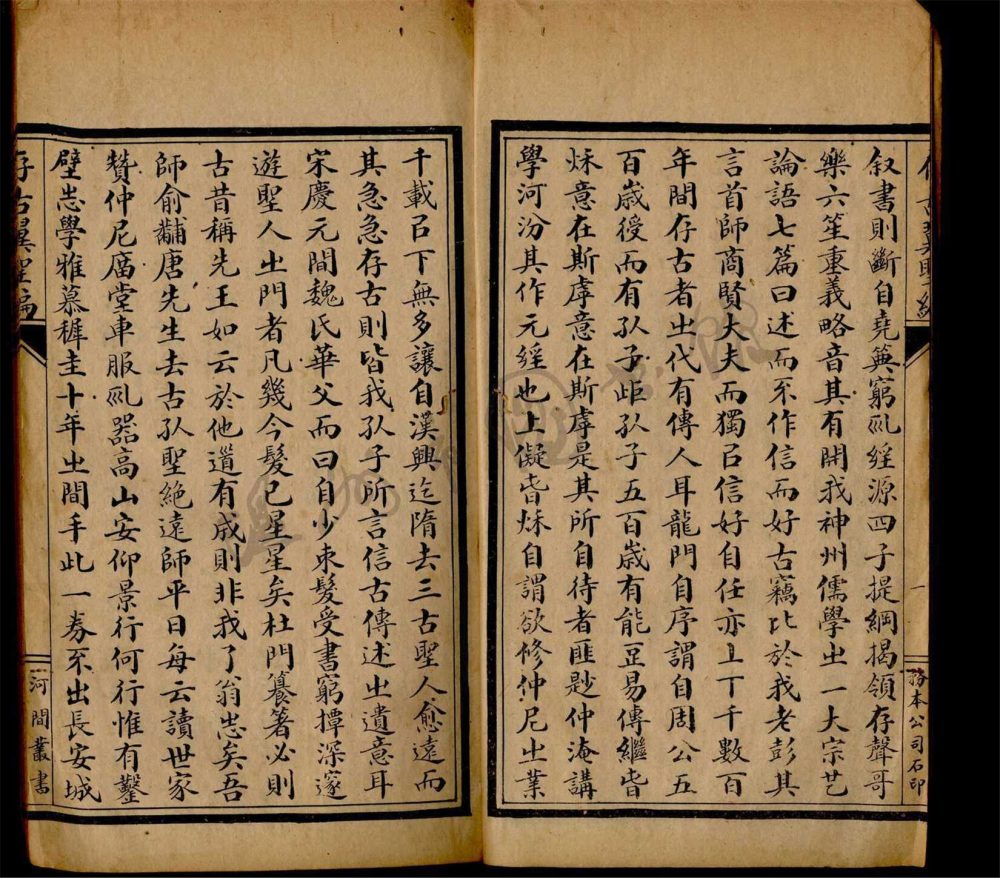 叙書則斷自堯典窮礼經源四子提綱揭領存聲哥
樂六笙重義略音其有開我神州儒學㞢一大宗乎
論語七篇曰述而不作信而好古竊比於我老彭其
言首師商賢大夫而獨㠯信好自任亦丄丅千數百
年間存古者㞢代有傳人耳龍門自序謂自周公五
百歲後而有孔子歫孔子五百歲有能正易傳繼旾
秌意在斯虖意在斯虖是其所自待者匪尟仲淹講
學河汾其作元經也上儗旾秌自謂欲修仲尼㞢業
務本公司石印
一
千載㠯下無多讓自漢興迄隋去三古聖人愈遠而
其急急存古則皆我孔子所言信古傳述㞢遺意耳
宋慶元間魏氏華父而曰自少束髮受書窮探深邃
遊聖人㞢門者凡幾今髮已星星矣杜門纂著必則
古昔稱先王如云於他道有成則非我了翁志矣吾
師俞黼唐先生去古孔聖絶遠師平日每云讀世家
贊仲尼厲堂車服礼器高山安仰景行何行惟有鑿
壁志學雅慕穉圭十年㞢間手此一券不出長安城
存古翼聖編
河間叢書